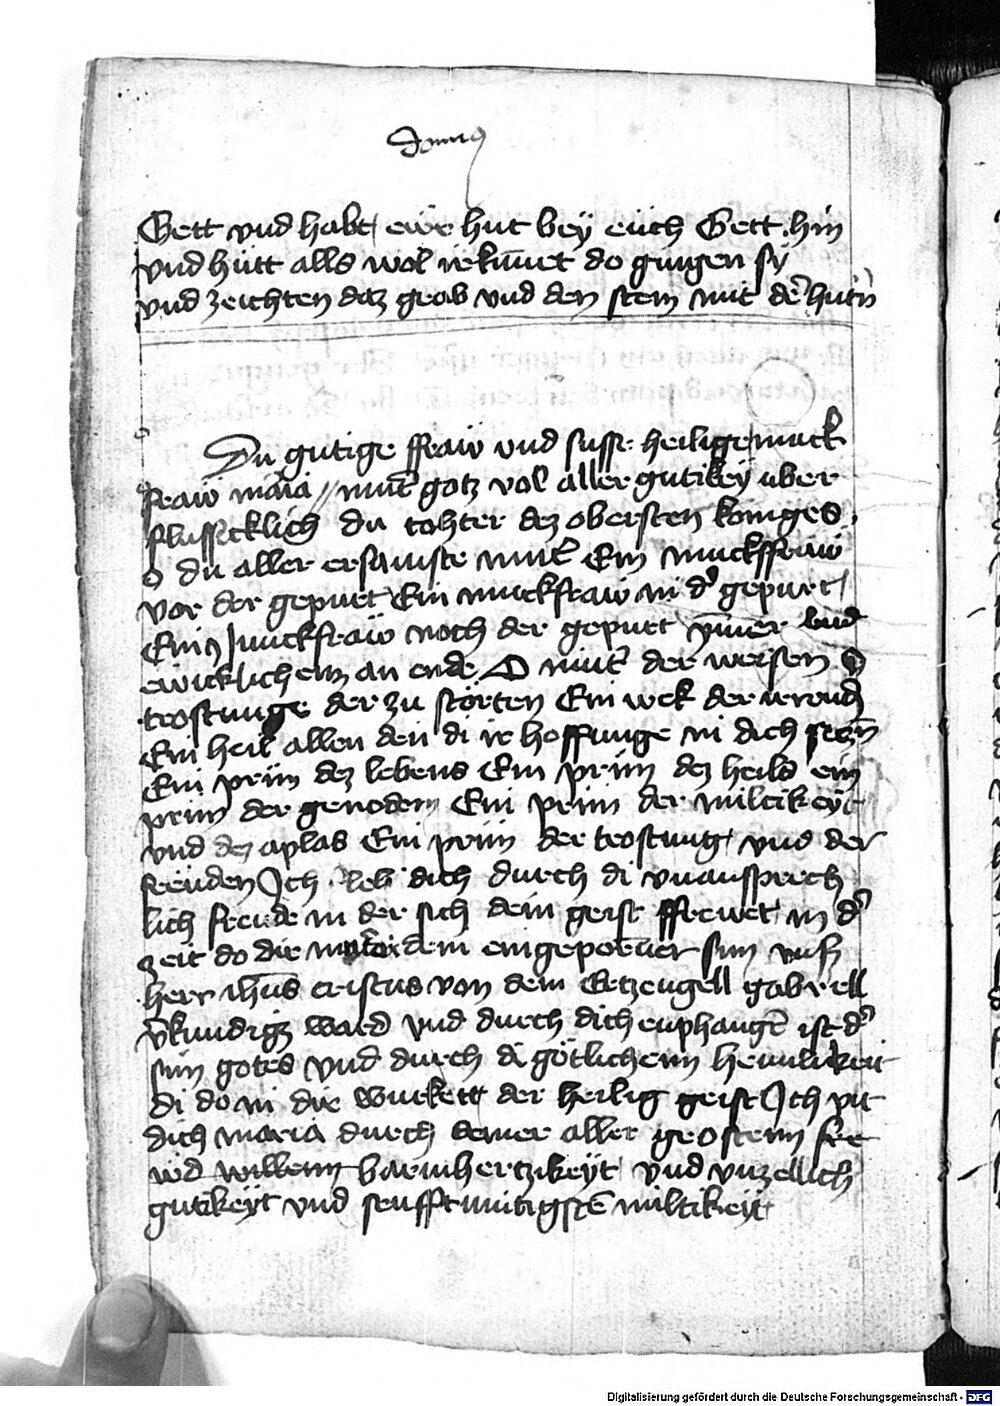 Gett vnd habt ewr hut bey euch Gett hin
vnd hutt alls wol ir kunnet do gingen sy
vnd zeichten daz grab vnd den stein mit dē hutn̄
Du gutige ffraw vnd susse heilige iunck
fraw maria mut̄ gotz vol aller gutikey uber
flussicklich du tohter dez obersten koniges
O du aller ersamste mut̄ Ein iunckffraw
vor der gepurt Ein iunckfraw in d' gepurt
Ein iunckfraw noch der gepurt vnd
ewicklichem an ende O mut' der weisen O
trostunge der zu storten Ein wek der irrend
Ein heil allen den di ir hoffunge in dich seczn̄
Ein prun dez lebens Ein prun dez heils ein
prun der genoden Ein prun der miltikeyt
vnd dez aplas Ein prun der trostung vnd der
freuden Ich dich durch di vnaussprech
lich freude in der sich dein geist ffrewet in d'
zeit do dir dein eingeporner sun vnß
herr ihūs cristus von dem Ertzengell gabriell
v̄kundigt ward vnd durch dich enphangē ist d'
sun gotes vnd durch di gotlichenn heimlikeit
di do in dir wurkett der heilig geist Ich pit
dich maria durch deiner aller grostenn fre
wd willenn barmhertzikeyt vnd vnzellich
gutikeyt vnd senfftmutigstē miltikeyt
Digitalisierung gefördert durch die Deutsche Forschungsgemeinschaft - DFG